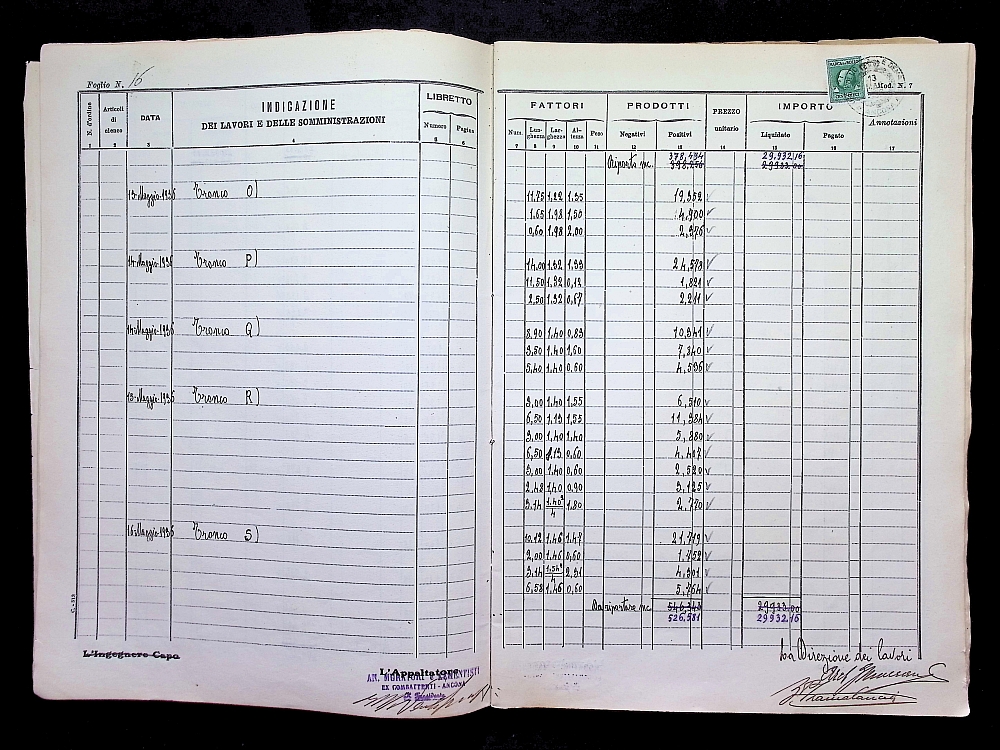 Foglio N. 16
N. d'ordine
Articoli di elenco
DATA
INDICAZIONE
DEI LAVORI E DELLE SOMMINISTRAZIONI
LIBRETTO
Numero
Pagina
1 2 3 4 5 6
13-Maggio-1936 Tronco O)
14-Maggio-1936 Tronco P)
14-Maggio-1936 Tronco Q)
15-Maggio-1936 Tronco R)
16-Maggio-1936 Tronco S)
L'Ingegnere Capo
L'Appaltatore
AN. MURATORI e CEMENTISTI
EX COMBATTENTI - ANCONA
Il Presidente
Mod. N. 7
FATTORI PRODOTTI PREZZO unitario IMPORTO Annotazioni
Num. Lunghezze Larghezze Altezza Peso Negativi Positivi Liquidato Pagato
7 8 9 10 11 12 13 14 15 16 17
378,494 29,932,16
Riporto mc. 398,256 29933.00
11.75 1,22 1,35 19,352
1.65 1.98 1,50 4,900
0,60 1.98 2.00 2,376
14.00 1.32 1,33 24,578
11,50 1.32 0,12 1,821
2,50 1.32 0,67 2,211
8.90 1.40 0,83 10,341
3,50 1.40 1,60 7,840
5,40 1.40 0,60 4,536
3,00 1.40 1.55 6,510
6,50 1,13 1,55 11,384
3,00 1,40 1,40 5,880
6,50 1,13 0,60 4,407
3,00 1,40 0,60 2,520
2,48 1,40 0,90 3,125
3.14 1.40² 4 1,80 2,770
10.12 1,46 1,47 21,719
2,00 1,46 0,60 1,752
3.14 1,54² 4 2,31 4,301
6,58 1,46 0,60 5,764
Da riportare mc. 546,343 29933.00
526,581 29932,16
La Direzione dei lavori